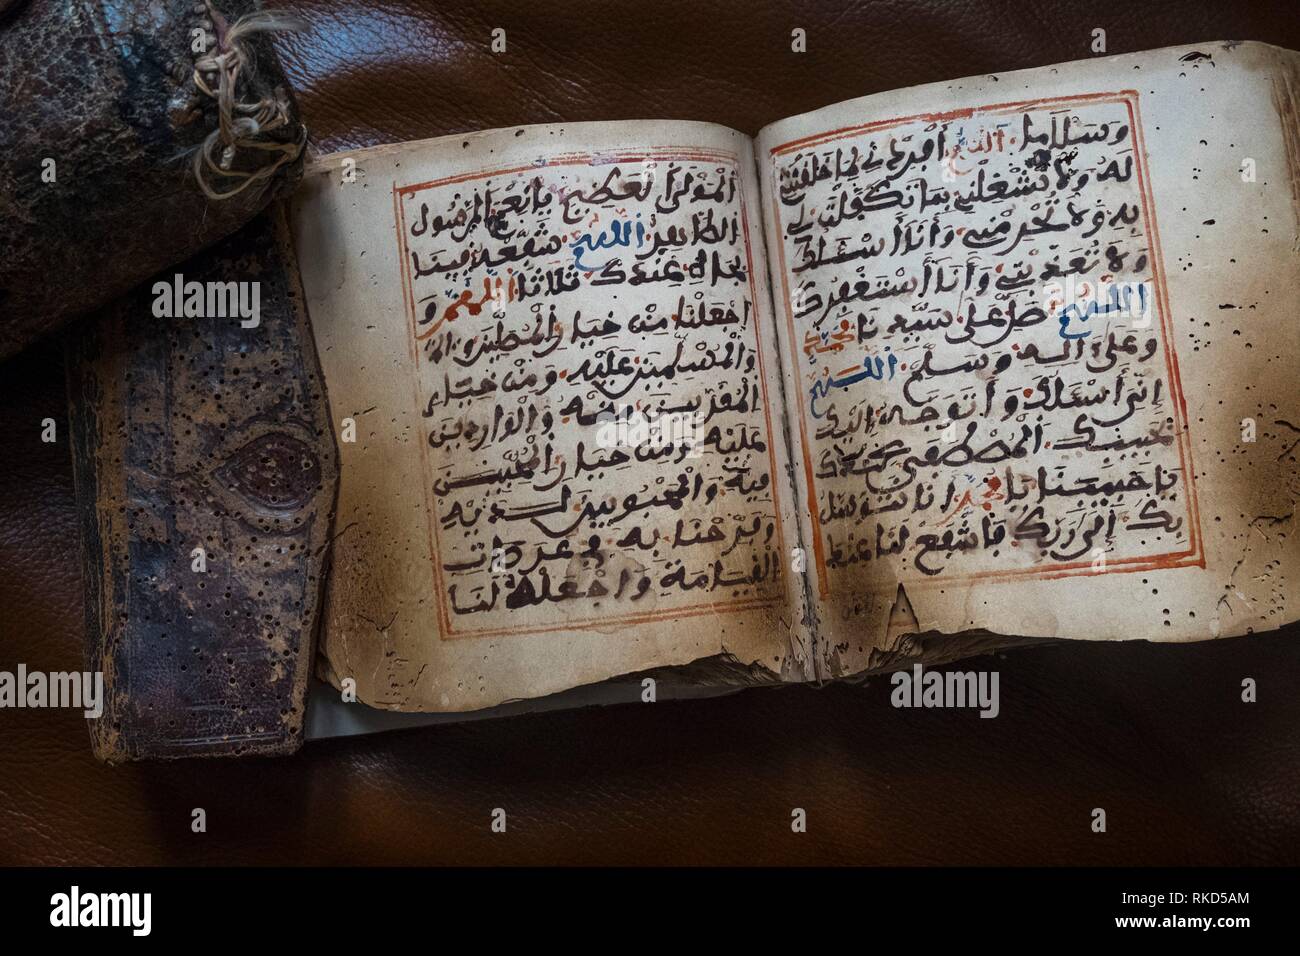 وَسَلَاماً اللهم أفردني لما خلقتني
له ولا تشغلني بما تكفلت لي
به ولا تحرمني وأنا أسئلك
ولا تعذبني وأنا أستغفرك
اللهم صل على سيدنا محمد
وعلى اله وسلم اللهم
إني أسئلك وأتوجه إليك
بحبيبك المصطفى عندك
يا حبيبنا يا محمد انا نتوسل
بك إلى ربك فاشفع لنا عند
المولى العظيم يا نعم الرسول
الطاهر اللهم شفعه فينا
بجاهه عندك ثلاثا اللهم و
اجعلنا من خيار المصلين
والمسلمين عليه ومن خيار
المقربين منه والواردين
عليه ومن خيار المحبين
فيه والمحبوبين لديه
وفرحنا به في عرصات
القيامة واجعله لنا
alamy
alamy
alamy
a alamy
Image ID: RKD5AM
www.alamy.com